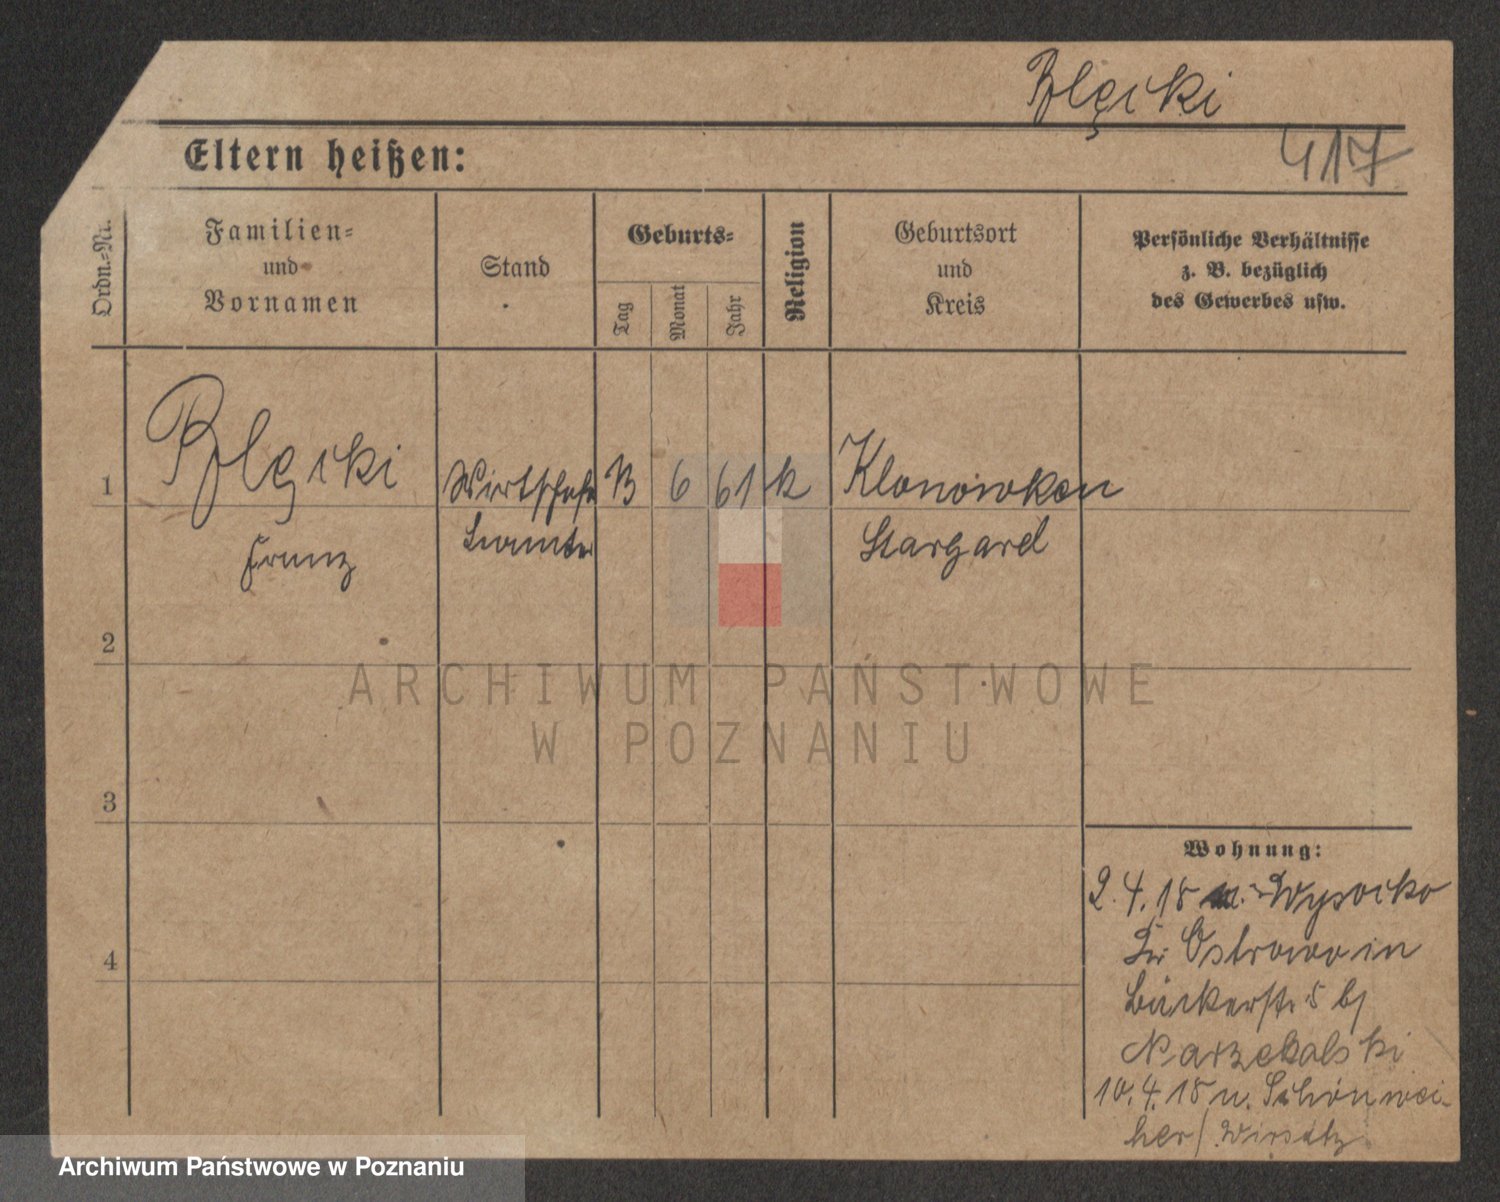 Blęcki
417
Eltern heißen:
Ordn.-Nr.
Familien-
und
Vornamen
Stand
Geburts-
Tag
Monat
Jahr
Religion
Geburtsort
und
Kreis
Persönliche Verhältnisse
z. B. bezüglich
des Gewerbes usw.
1
Blęcki
Wirtschafts
6
61
k
Klonowken
Franz
Beamter
Stargard
2
3
4
Wohnung:
2.4.18 Wysocko
Kr Ostrowo in
Bäckerstr. 5 b/
10.4.18 n. Schönwei-
her/ Wirsitz
ARCHIWUM PAŃSTWOWE
W POZNANIU
Archiwum Państwowe w Poznaniu